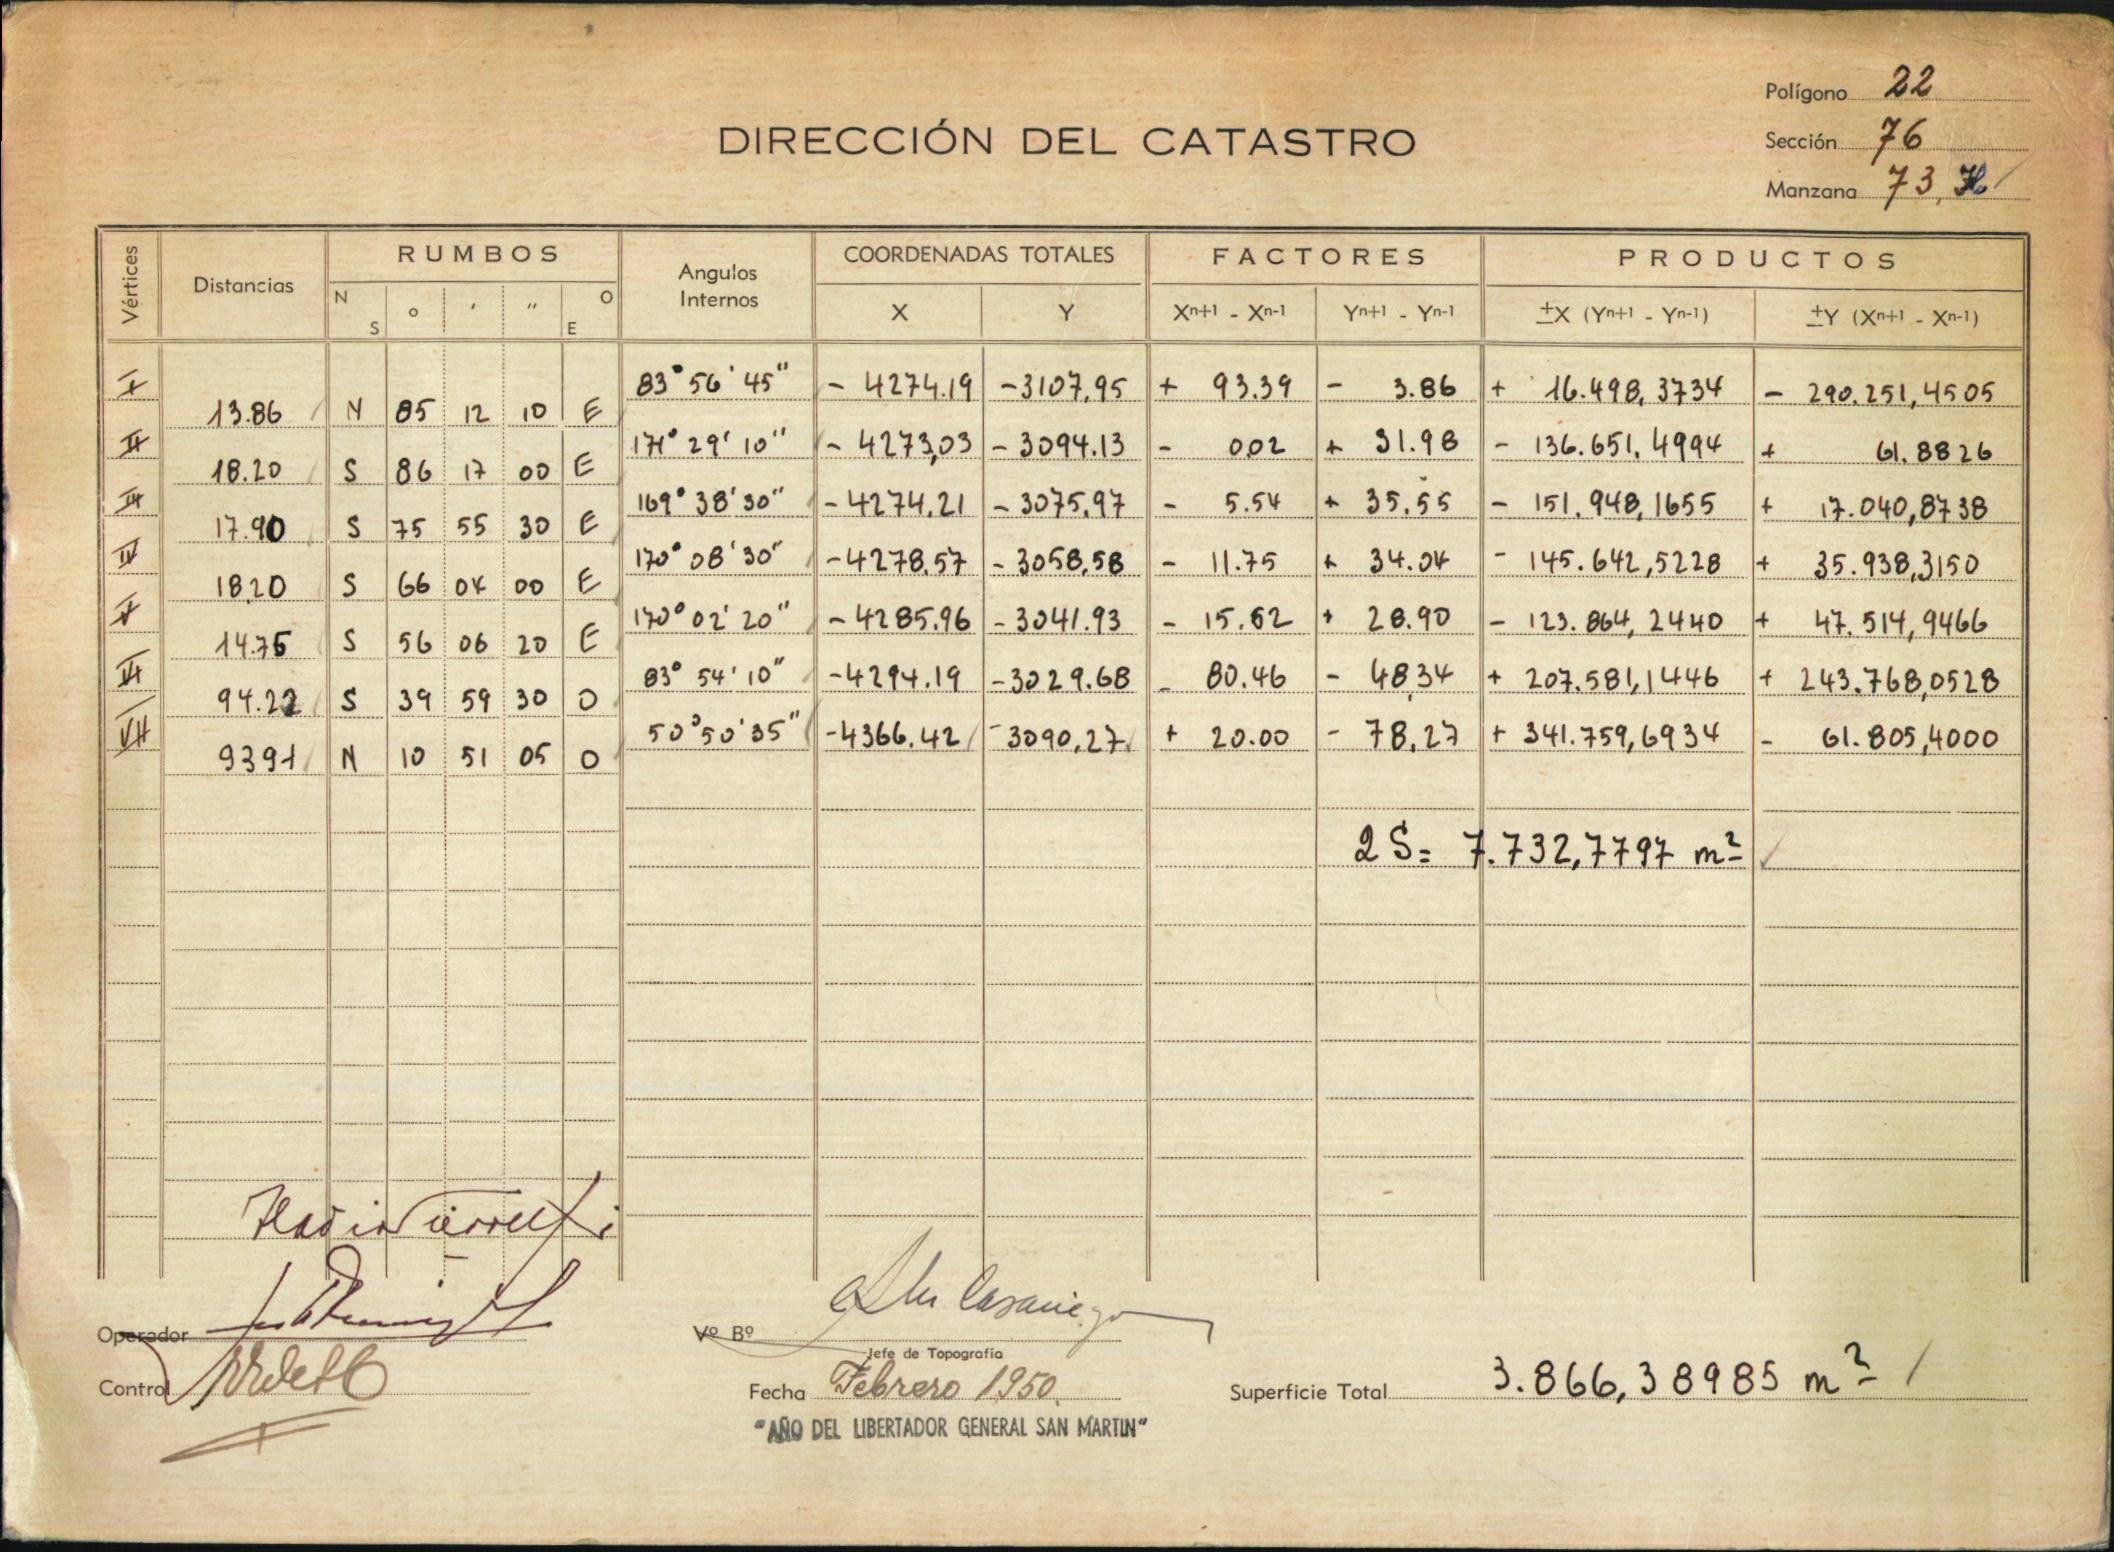 Polígono 22
DIRECCIÓN DEL CATASTRO
Sección 76
Manzana 73,
Vértices Distancias RUMBOS Angulos Internos COORDENADAS TOTALES FACTORES PRODUCTOS
N S ° ' " O E X Y Xn+1 - Xn-1 Yn+1 - Yn-1 ±X (Yn+1 - Yn-1) ±Y (Xn+1 - Xn-1)
I 83° 56' 45" - 4274.19 -3107,95 + 93.39 - 3.86 + 16.498,3734 - 290.251,4505
13.86 N 85 12 10 E
II 171° 29' 10" - 4273,03 - 3094.13 - 0,02 + 31.98 - 136.651,4994 + 61.8826
18.20 S 86 17 00 E
III 169° 38' 30" -4274.21 - 3075,97 - 5.54 + 35.55 - 151.948,1655 + 17.040,8738
17.90 S 75 55 30 E
IV 170° 08' 30" -4278,57 - 3058,58 - 11.75 + 34.04 - 145.642,5228 + 35.938,3150
18.20 S 66 04 00 E
V 170° 02' 20" - 4285.96 - 3041.93 - 15.62 + 28.90 - 123.864,2440 + 47.514,9466
14.75 S 56 06 20 E
VI 83° 54' 10" -4294.19 -3029.68 - 80.46 - 48,34 + 207.581,1446 + 243.768,0528
94.22 S 39 59 30 O
VII 50° 50' 35" -4366.42 - 3090,27 + 20.00 - 78,27 + 341.759,6934 - 61.805,4000
93.91 N 10 51 05 O
2 S = 7.732,7797 m²
Operador
Vº Bº
Jefe de Topografía
Control
Fecha Febrero 1950.
Superficie Total 3.866,38985 m²
"AÑO DEL LIBERTADOR GENERAL SAN MARTIN"